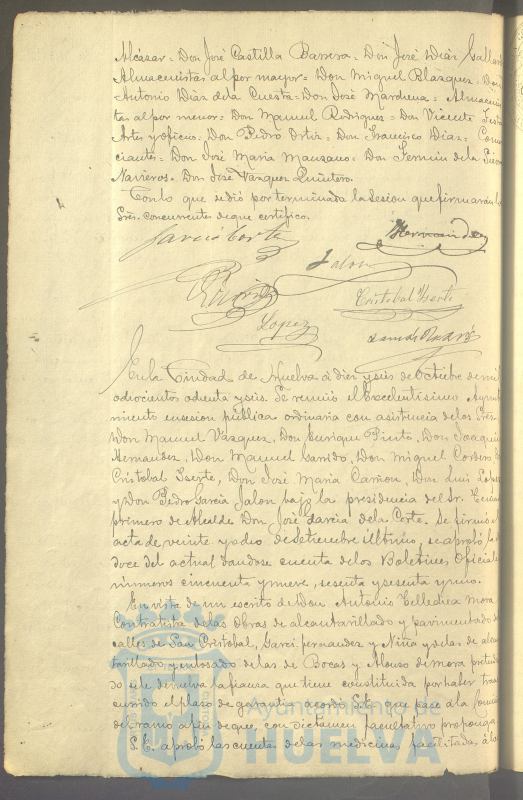 Alcázar = Don José Castilla Barrera = Don José Diaz
Almacenistas al por mayor = Don Miguel Blazquez = Don
Antonio Diaz dela Cuesta = Don José Marchena = Almacenis
tas al por menor = Don Manuel Rodriguez = Don Vicente
Artes y oficios = Don Pedro Ortiz = Don Francisco Diaz = Comer
ciantes = Don José Maria Manzano = Don Fermin dela
Navieros = Don José Vazquez Quintero.
Con lo que se dió por terminada la sesion que firmarán los
Sres. concurrentes de que certifico.
Garcia Corte
Hernandez
Jalon
Cristobal Iserte
Lopez
En la Ciudad de Huelva á diez y seis de Octubre de mil
ochocientos ochenta y seis. Se reunió el Excelentisimo Ayunta
miento en sesion pública ordinaria con asistencia de los Sres.
Don Manuel Vázquez, Don Enrique Pinto, Don Joaquin
Hernandez, Don Manuel Garrido, Don Miguel Cordero,
Cristobal Iserte, Don José Maria Carrion, Don Luis Lopez
y Don Pedro Garcia Jalon bajo la presidencia del Sr. Teniente
primero de Alcalde Don José Garcia dela Corte. Se firmó el
acta de veinte y dos de Setiembre último, se aprobó la de
doce del actual dandose cuenta delos Boletines Oficiales
números cincuenta y nueve, sesenta y sesenta y uno.
En vista de un escrito de Don Antonio Mora
Contratista delas obras de alcantarillado y pavimentado de
calles de San Cristóbal, Garci-fernandez y Niña y delas de alcan
tarillado y enlosado de las de Bocas y Alonso de mora preten
do se le devuelva la fianza que tiene constituida por haber tras
currido el plazo de garantia acordó S.E. que pase a la Comision
del ramo a fin de que, con dictamen facultativo proponga.
S.E. aprobó las cuentas delas medicinas facilitadas á los
Ayuntamiento
HUELVA